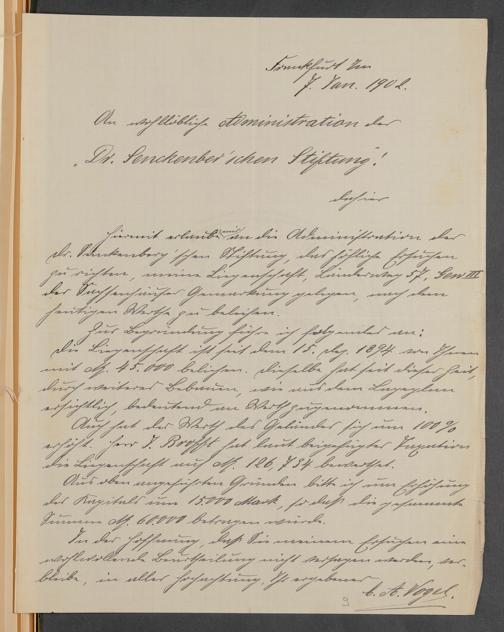 Frankfurt den
7. Jan. 1902.
An wohllöbliche Administration der
„Dr. Senckenber'schen Stiftung"!
dahier
Hiermit erlaube mir an die Administration der
Dr. Senckenberg'schen Stiftung, das höfliche Ersuchen
zu richten, meine Liegenschaft, Länderweg 57, Gew III
der Sachsenhäuser Gemarkung gelegen, nach dem
heutigen Werthe zu beleihen.
Zur Begründung führe ich folgendes an:
Die Liegenschaft ist seit dem 15. Dez. 1894 von Ihnen
mit M. 45.000 beliehen. Dieselbe hat seit dieser Zeit,
durch weiteres Bebauen, wie aus dem Lageplan
ersichtlich, bedeutend an Werth zugenommen.
Auch hat der Werth des Geländes sich um 100%
erhöht. Herr J. hat laut beigefügter Taxation
die Liegenschaft auf M. 126,734 bewerthet.
Aus oben angeführten Gründen bitte ich um Erhöhung
des Kapitals um 15000 Mark, so daß die gesammte
Summe M. 60.000 betragen würde.
In der Hoffnung, daß Sie meinem Ersuchen eine
wohlwollende Beurtheilung nicht versagen werden, ver-
bleibe, in aller Hochachtung, Ihr ergebener
C. A. Vogel.